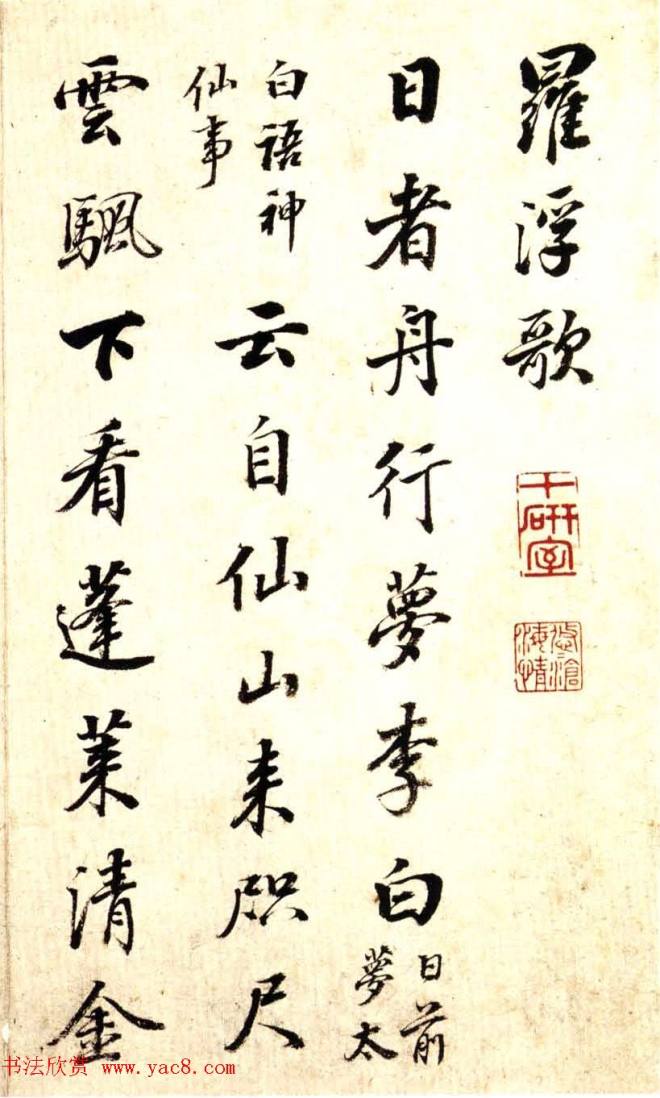 羅浮歌
十研室
日者舟行夢李白日前夢太
白語神仙事云自仙山来咫尺
雲颿下看蓬萊清金
书法欣赏 www.yac8.com